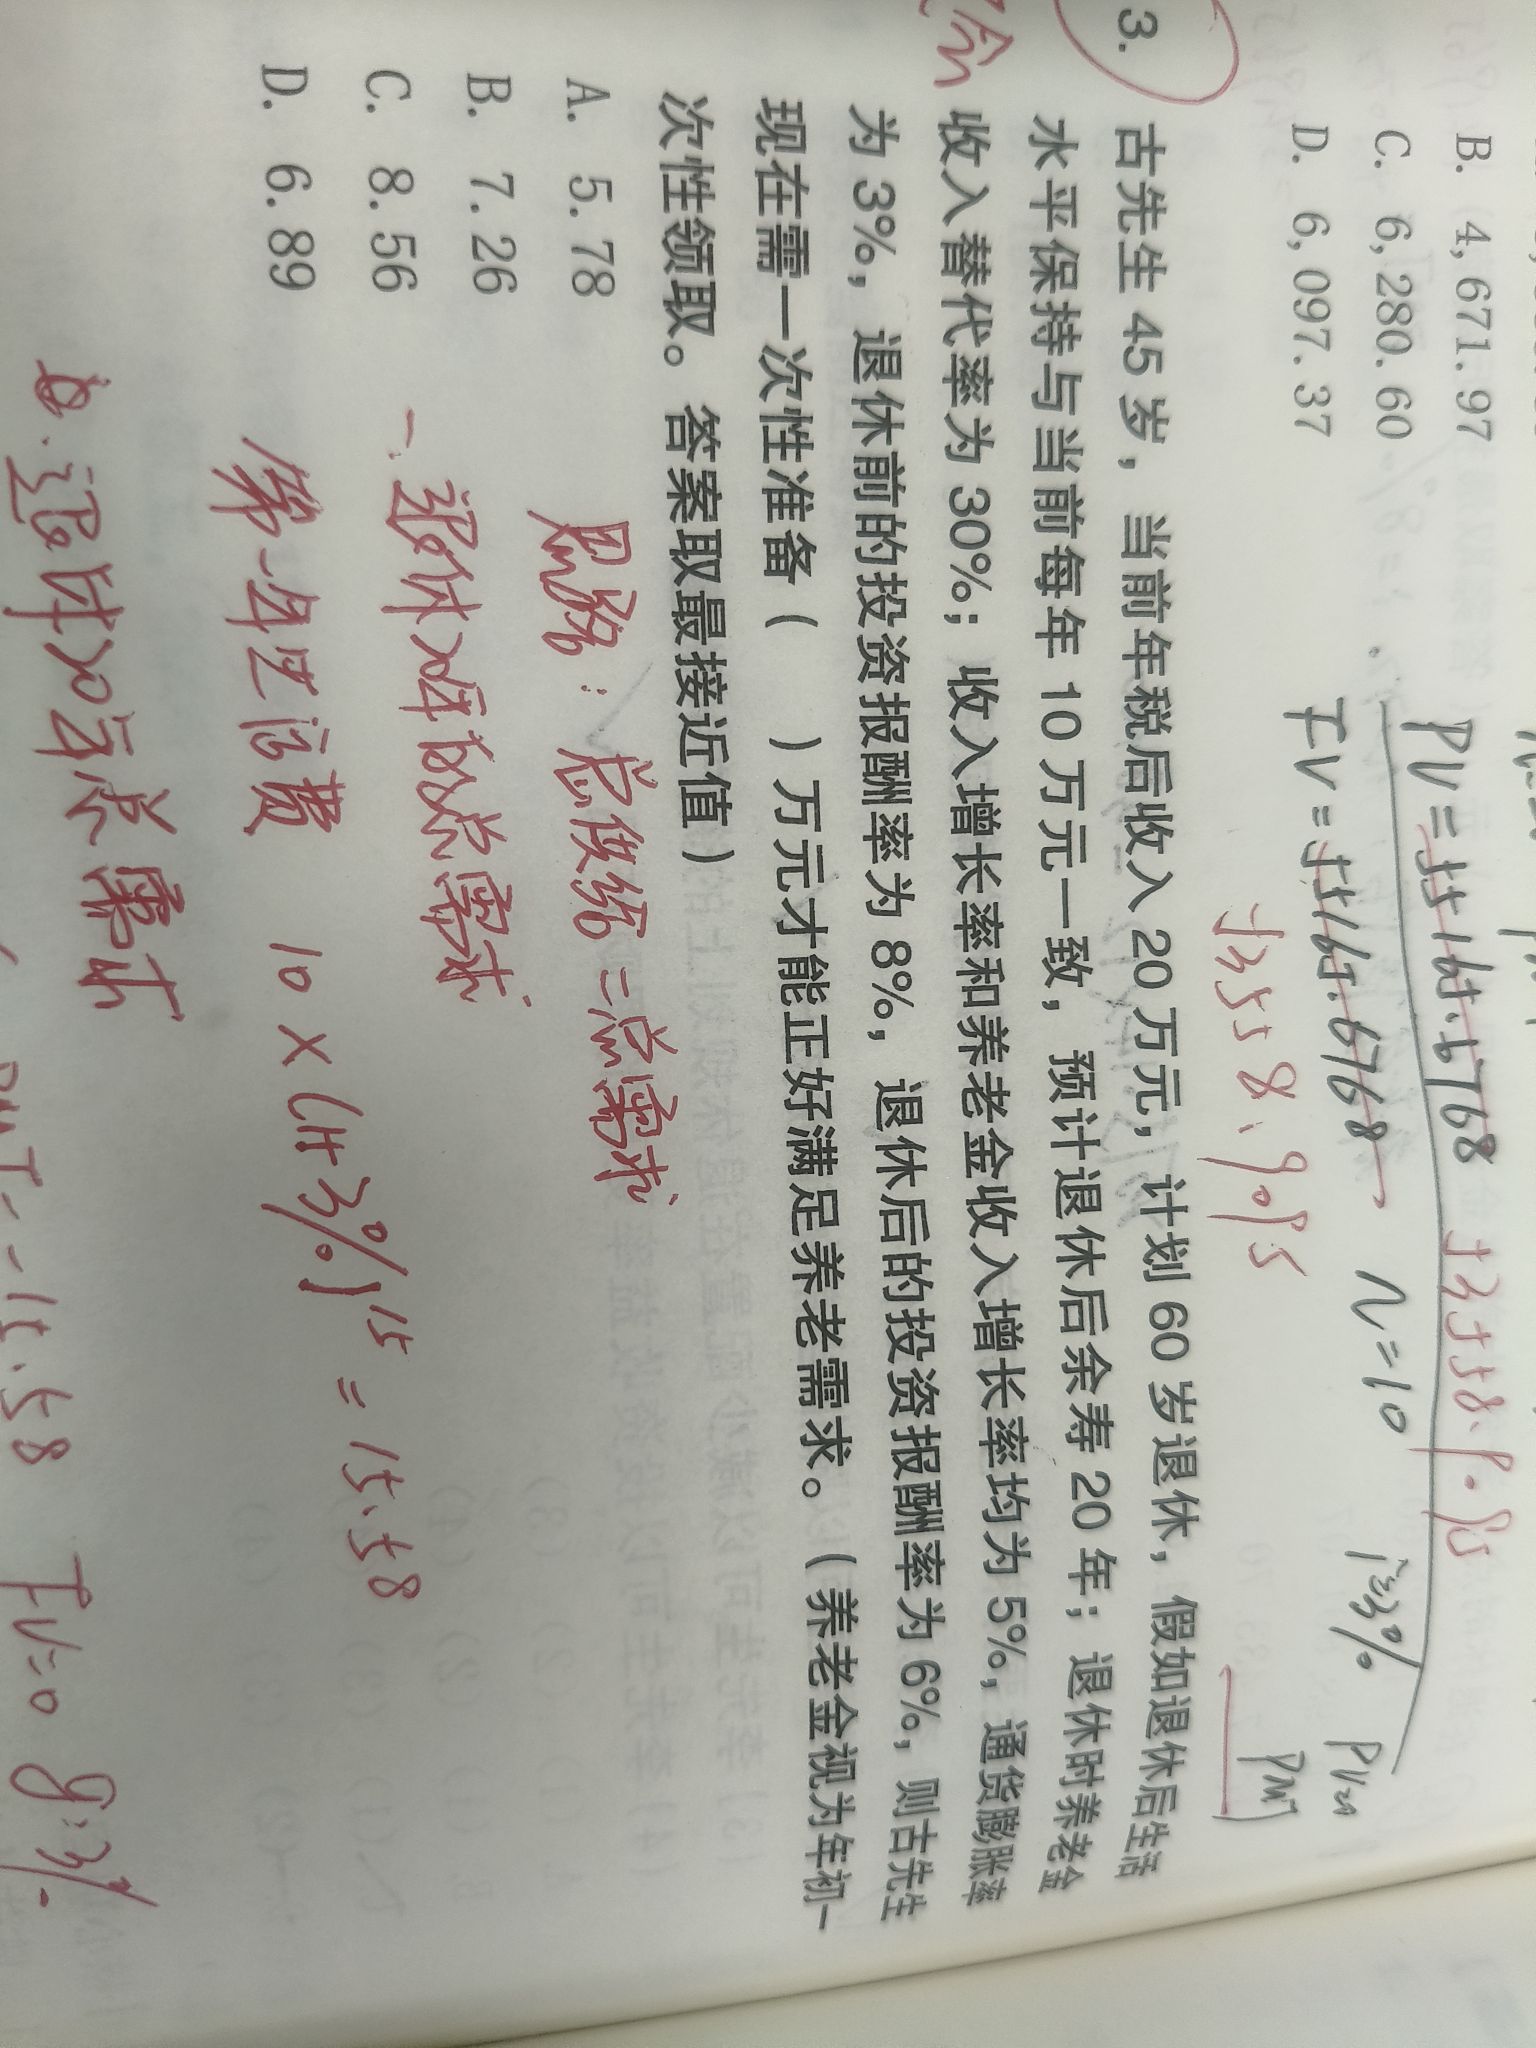 B. 4,671.97
C. 6,280.60
D. 6,097.37
PV=
FV=
N=10
i=3%
3. 古先生 45 岁，当前年税后收入 20 万元，计划 60 岁退休，假如退休后生活
水平保持与当前每年 10 万元一致，预计退休后余寿 20 年；退休时养老金
收入替代率为 30%；收入增长率和养老金收入增长率均为 5%，通货膨胀率
为 3%，退休前的投资报酬率为 8%，退休后的投资报酬率为 6%，则古先生
现在需一次性准备（ ）万元才能正好满足养老需求。（养老金视为年初一
次性领取。答案取最接近值）
A. 5.78
B. 7.26
C. 8.56
D. 6.89
思路：总供给=总需求
一、退休254的总需求
第一年生活费 10×(1+3%)^15=15.58
退休20年总需求
PMT=-15.58 FV=0 g:3%